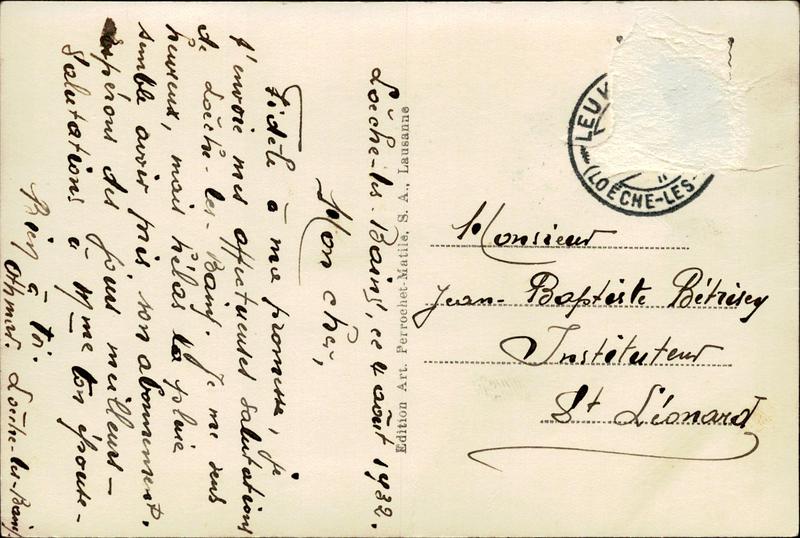 Loèche-les-Bains, ce 4 août 1932.
Mon cher,
Fidèle à ma promesse, je
t'envoie mes affectueuses salutations
de Loèche-les-Bains. Je me sens
heureux, mais hélas la pluie
semble avoir pris son abonnement.
Espérons des jours meilleurs -
Salutations à Mme ton épouse -
Bien à toi.
Othmar. Loèche-les-Bains
Edition Art. Perrochet-Matile, S. A., Lausanne
LEUK
(LOÈCHE-LES-
Monsieur
Jean-Baptiste Bétrisey
Instituteur
St Léonard